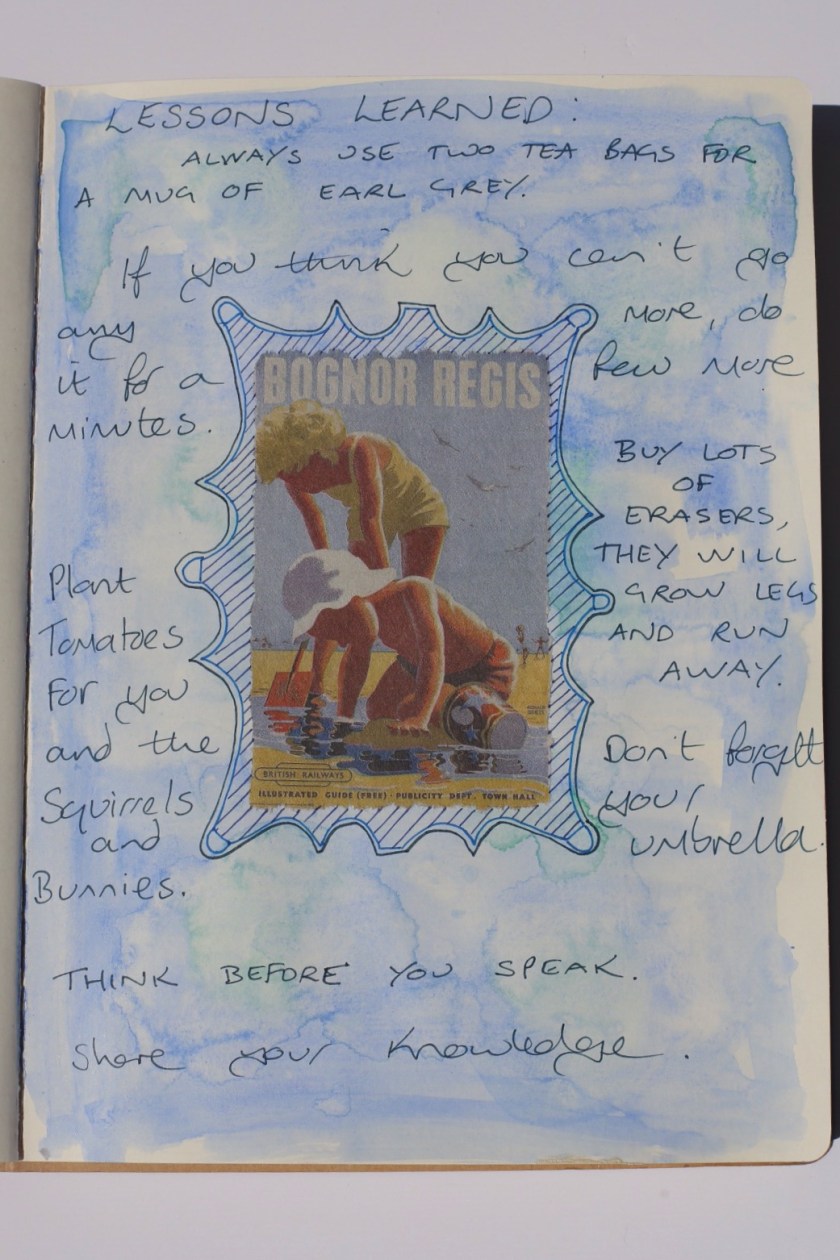 LESSONS LEARNED:
ALWAYS USE TWO TEA BAGS FOR
A MUG OF EARL GREY.
If you think you can't go
any more, do
it for a few more
minutes.
BOGNOR REGIS
BUY LOTS
OF
ERASERS,
THEY WILL
GROW LEGS
AND RUN
AWAY.
Plant
Tomatoes
For you
and the
Squirrels
and
Bunnies.
Don't forget
your
umbrella.
BRITISH RAILWAYS
ILLUSTRATED GUIDE (FREE) · PUBLICITY DEPT. TOWN HALL
THINK BEFORE YOU SPEAK.
Share your knowledge.